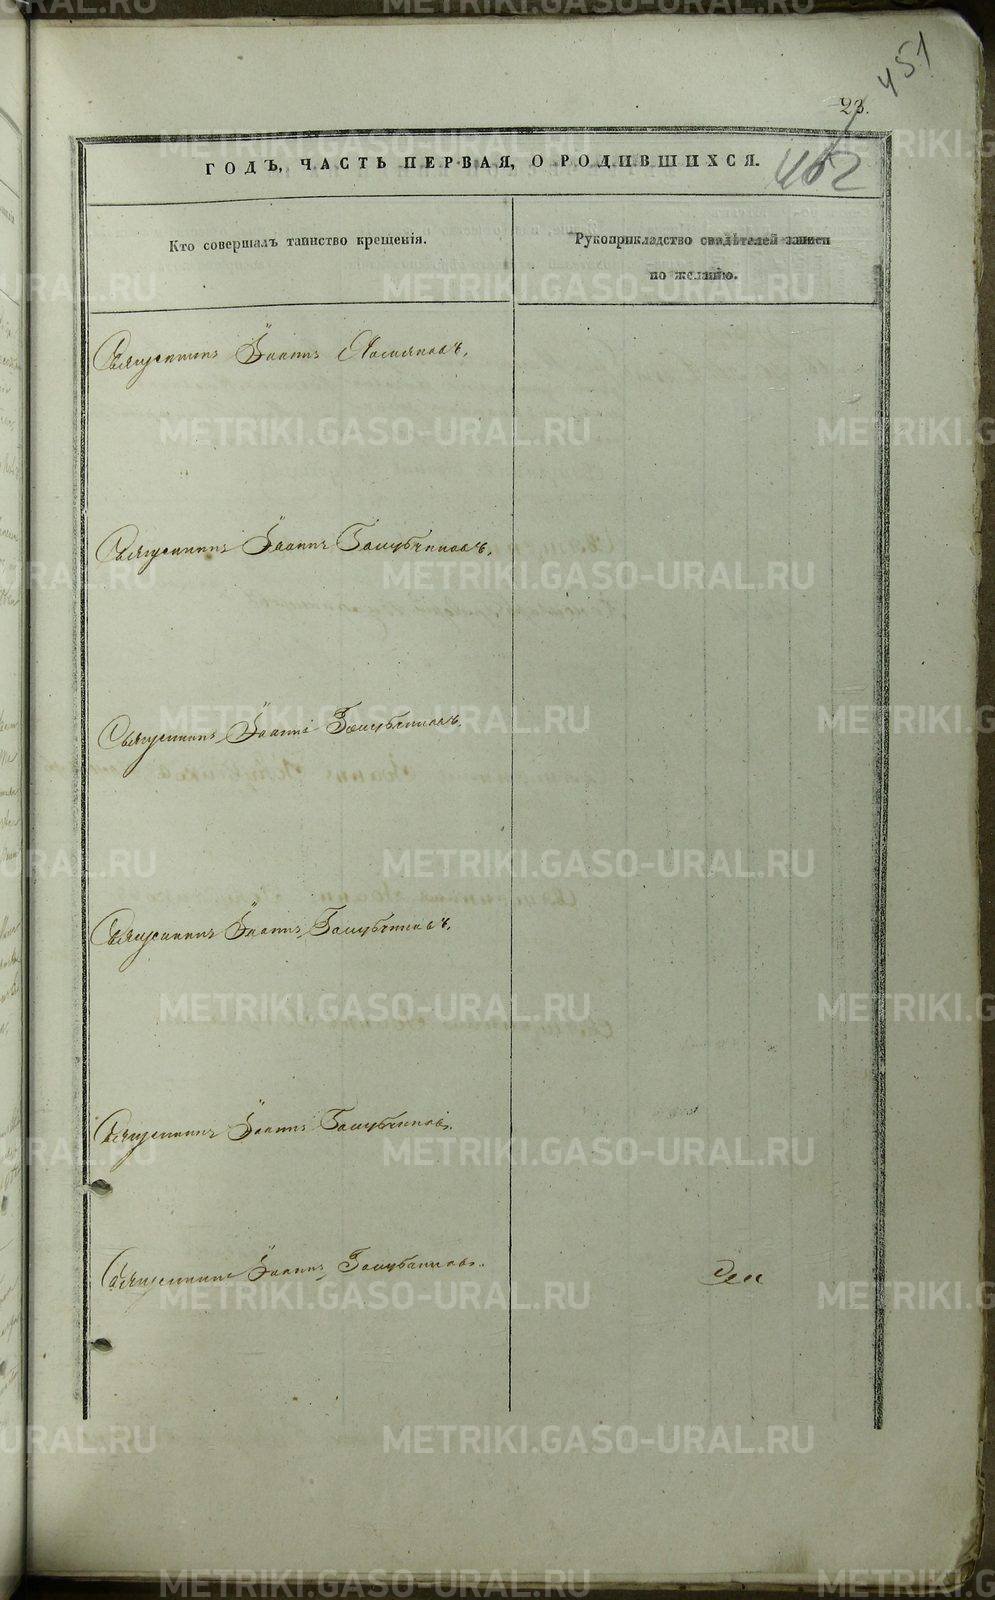 451
23.
452
ГОДЪ, ЧАСТЬ ПЕРВАЯ, О РОДИВШИХСЯ.
Кто совершалъ таинство крещенія.
Рукоприкладство свидѣтелей записи
по желанію.
Священникъ Іоаннъ
Священникъ Іоаннъ Голубчиковъ.
Священникъ Іоаннъ Голубчиковъ
Священникъ Іоаннъ Голубчиковъ.
Священникъ Іоаннъ Голубчиковъ.
Священникъ Іоаннъ Голубчиковъ.
METRIKI.GASO-URAL.RU